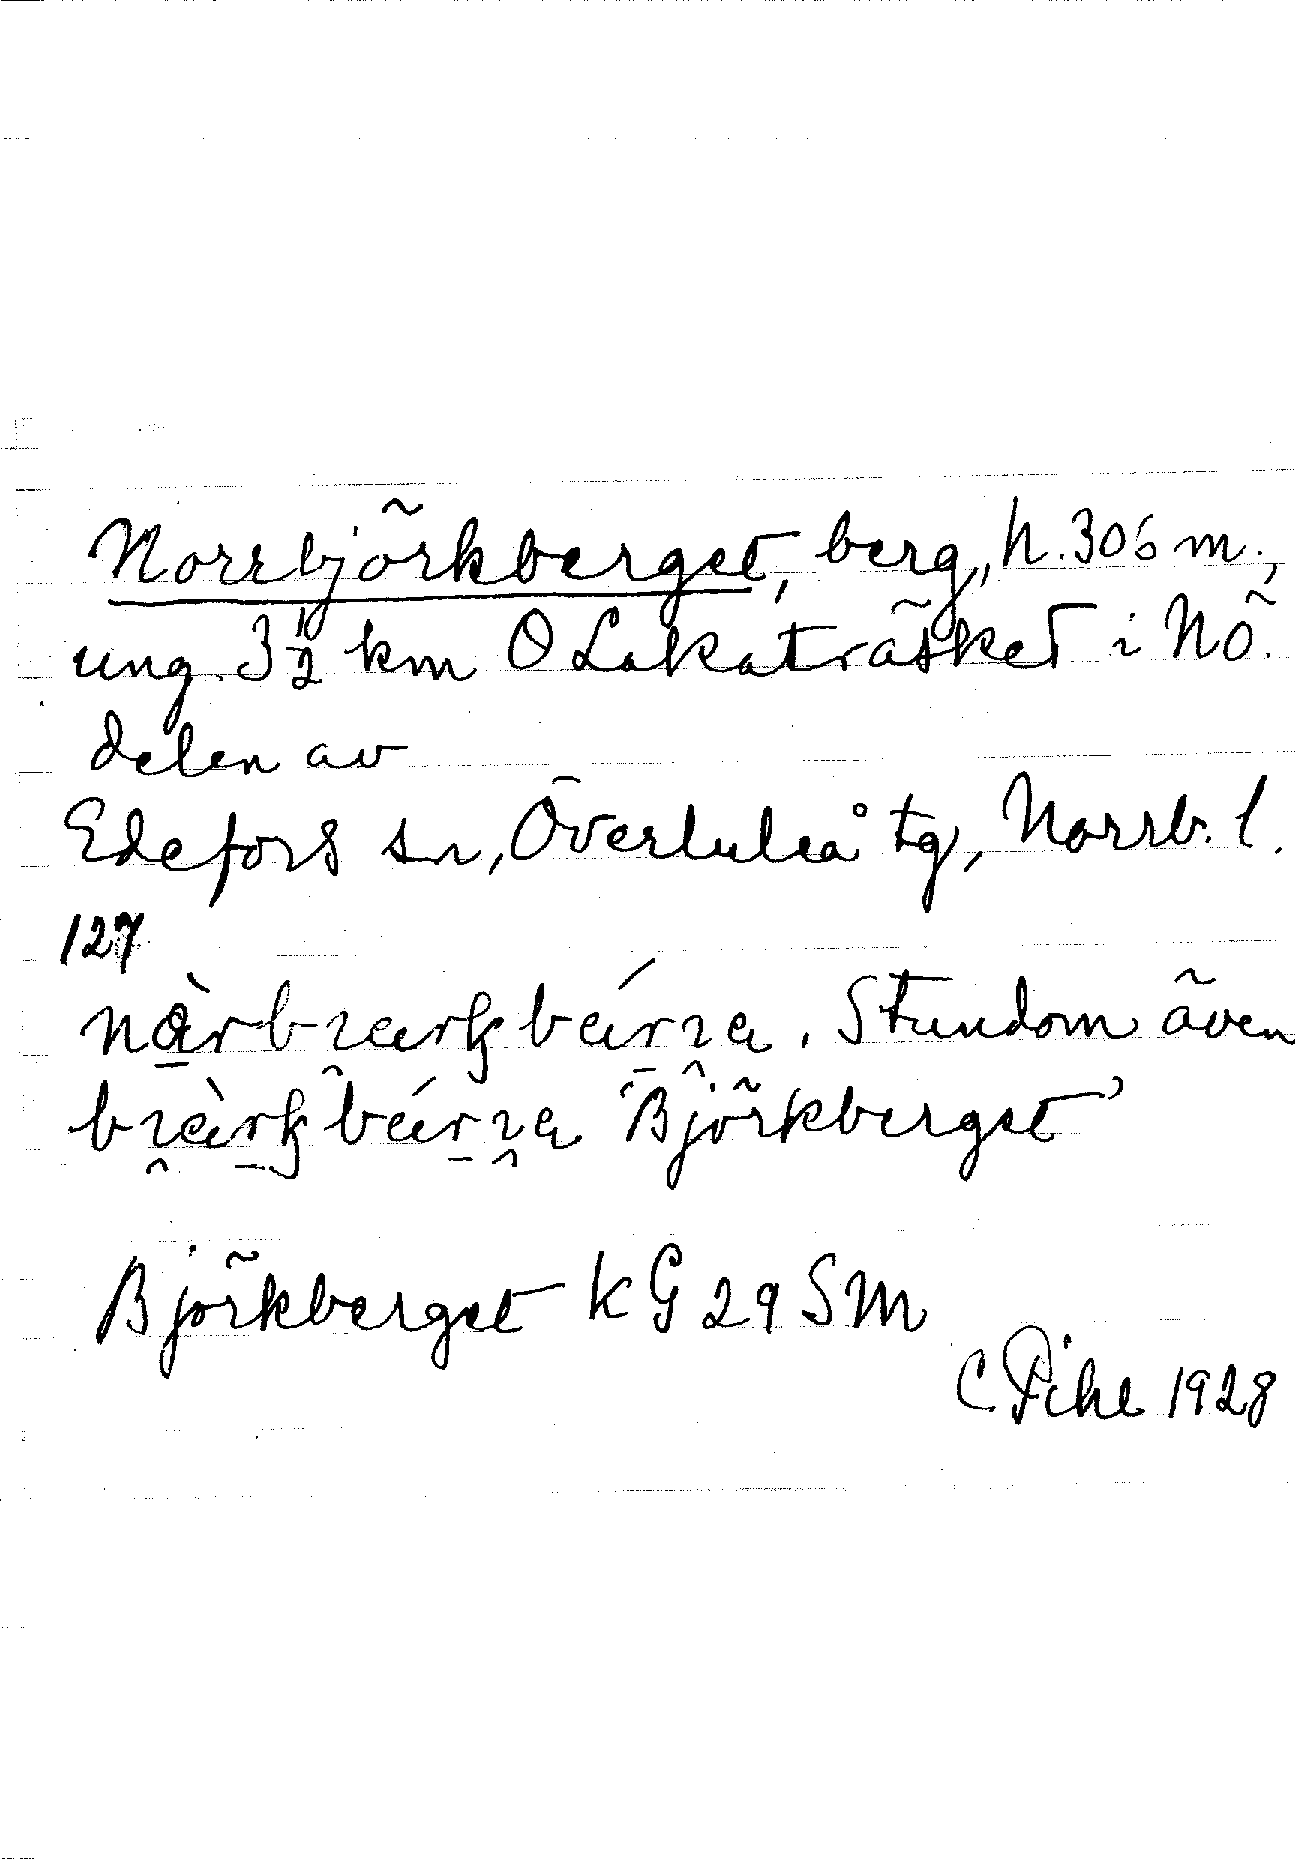 Norrbjörkberget, berg, h. 306 m.,
ung. 3½ km O Lakaträsket i NÖ.
delen av
Edefors sn, Överluleå tg, Norrb. l.
127
Stundom även
'Björkberget'
Björkberget KG 29 SM
C Pihl 1928